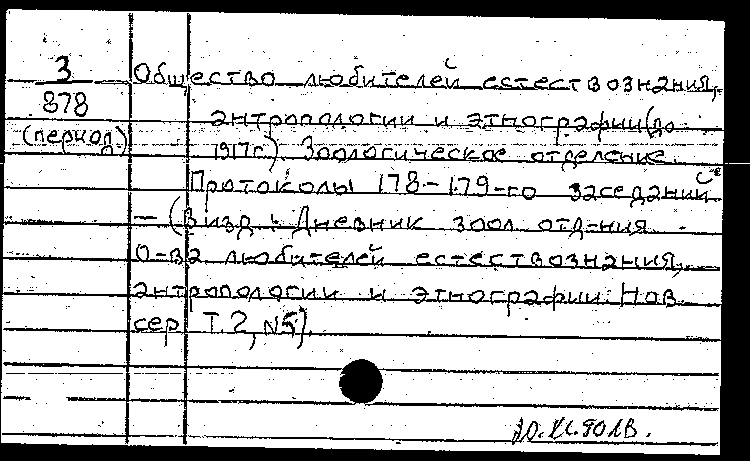 З
878
(период.)
Общество любителей естествознания,
антропологии и этнографии (до
1917г.). Зоологическое отделение.
Протоколы 178-179-го заседаний
— (В изд.: Дневник зоол. отд-ния
О-ва любителей естествознания,
антропологии и этнографии. Нов.
сер. Т. 2, №5).